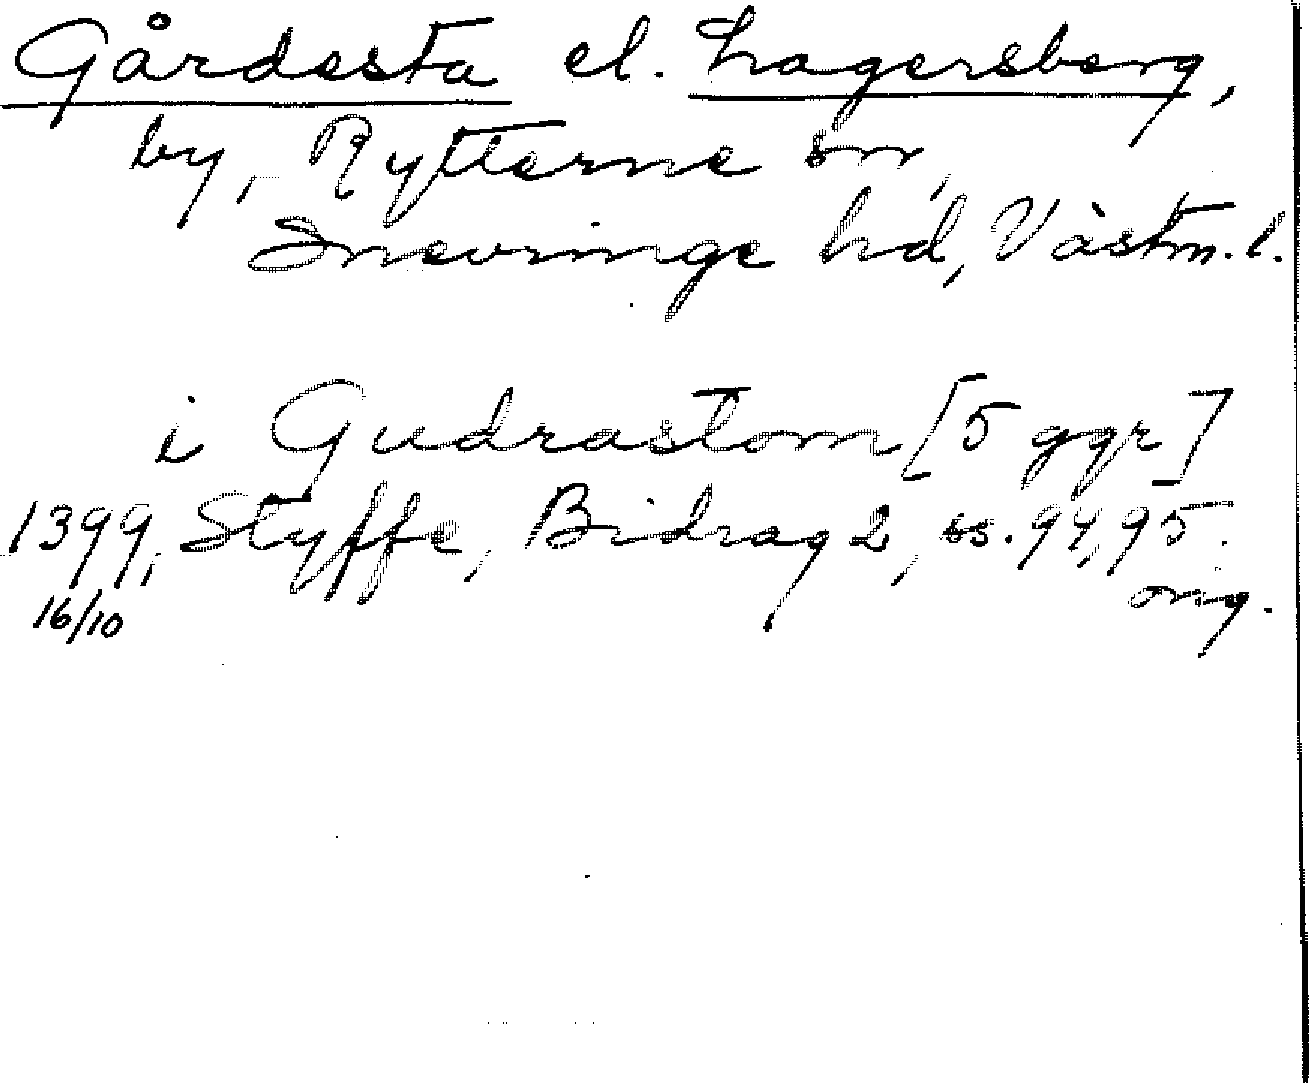 Gårdesta el. Lagersberg,
by, Rytterne sn,
Snevringe hd, Västm. l.
i Gudrastom [5 ggr]
1399, Styffe, Bidrag 2, ss. 94, 95.
16/10 orig.